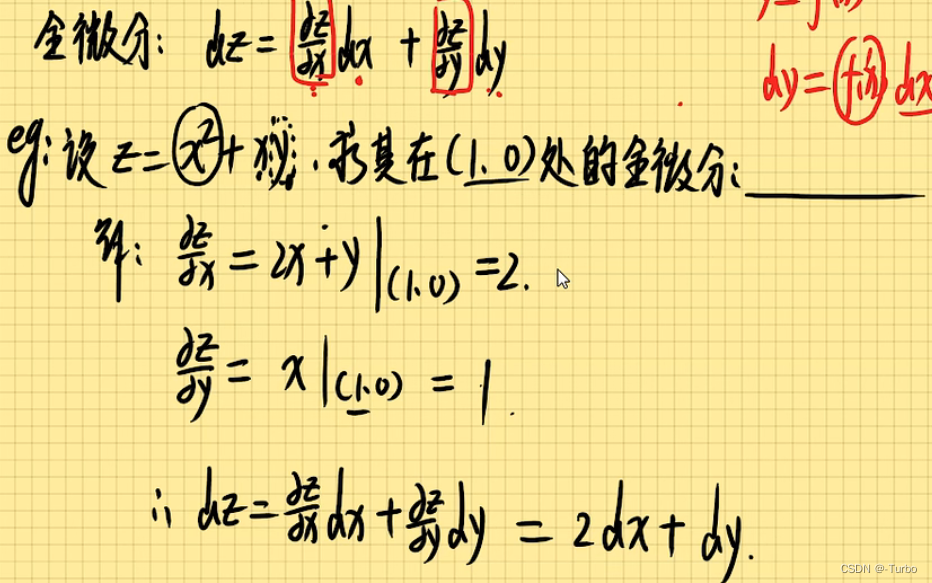 全微分: dz = ∂z/∂x dx + ∂z/∂y dy
dy = f'(x) dx
eg: 设 z = x² + xy, 求其在(1,0)处的全微分: ______
解: ∂z/∂x = 2x + y |(1,0) = 2.
∂z/∂y = x |(1,0) = 1.
∴ dz = ∂z/∂x dx + ∂z/∂y dy = 2dx + dy.
CSDN @-Turbo